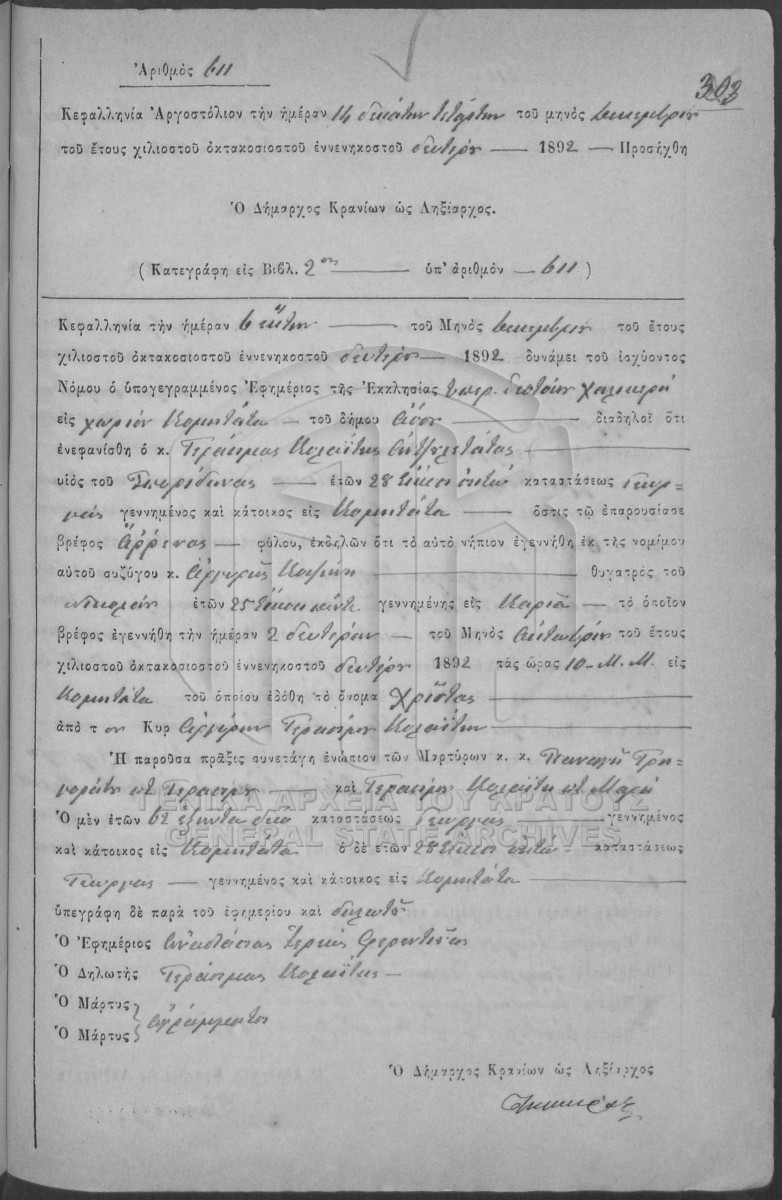 Ἀριθμὸς 611
303
Κεφαλληνία Ἀργοστόλιον τὴν ἡμέραν 14 δεκάτην τετάρτην τοῦ μηνὸς Δεκεμβρίου
τοῦ ἔτους χιλιοστοῦ ὀκτακοσιοστοῦ ἐννενηκοστοῦ δευτέρου — 1892 — Προσήχθη
Ὁ Δήμαρχος Κρανίων ὡς Ληξίαρχος.
(Κατεγράφη εἰς Βιβλ. 2ον — ὑπ' ἀριθμὸν — 611)
Κεφαλληνία τὴν ἡμέραν 6 ἕκτην — τοῦ Μηνὸς Δεκεμβρίου τοῦ ἔτους
χιλιοστοῦ ὀκτακοσιοστοῦ ἐννενηκοστοῦ δευτέρου — 1892 δυνάμει τοῦ ἰσχύοντος
Νόμου ὁ ὑπογεγραμμένος Ἐφημέριος τῆς Ἐκκλησίας Ὑπερ.
εἰς χωρίον Κομητάτα — τοῦ δήμου — διαδηλοῖ ὅτι
ἐνεφανίσθη ὁ κ. Γεράσιμος Κολαΐτης
υἱὸς τοῦ Σπυρίδωνος — ἐτῶν 28 εἴκοσι ὀκτώ καταστάσεως Γεωρ-
γός γεννημένος καὶ κάτοικος εἰς Κομητάτα — ὅστις τῷ ἐπαρουσίασε
βρέφος ἄρρενος — φύλου, ἐκδηλῶν ὅτι τὸ αὐτὸ νήπιον ἐγεννήθη ἐκ τῆς νομίμου
αὐτοῦ συζύγου κ. — θυγατρὸς τοῦ
Νικολάου ἐτῶν 25 εἴκοσι πέντε γεννημένης εἰς — τὸ ὁποῖον
βρέφος ἐγεννήθη τὴν ἡμέραν 2 δευτέραν — τοῦ Μηνὸς Ὀκτωβρίου τοῦ ἔτους
χιλιοστοῦ ὀκτακοσιοστοῦ ἐννενηκοστοῦ δευτέρου 1892 τὰς ὥρας 10 — Μ. Μ. εἰς
Κομητάτα τοῦ ὁποίου ἐδόθη τὸ ὄνομα Χρῆστος —
ἀπὸ τ ον Κυρ Γερασίμου Κολαΐτην —
Ἡ παροῦσα πρᾶξις συνετάγη ἐνώπιον τῶν Μαρτύρων κ. κ. Παναγῆ Γρη-
γοράτου Γερασίμου — καὶ Γερασίμου Κολαΐτη
ΓΕΝΙΚΑ ΑΡΧΕΙΑ ΤΟΥ ΚΡΑΤΟΥΣ
GENERAL STATE ARCHIVES
Ὁ μὲν ἐτῶν 62 ἑξήντα δύο καταστάσεως Γεωργός — γεννημένος
καὶ κάτοικος εἰς Κομητάτα ὁ δὲ ἐτῶν 28 εἴκοσι ὀκτώ — καταστάσεως
Γεωργός — γεννημένος καὶ κάτοικος εἰς Κομητάτα —
ὑπεγράφη δὲ παρὰ τοῦ ἐφημερίου καὶ δηλωτοῦ
Ὁ Ἐφημέριος Ἀναστάσιος Ἱερεὺς
Ὁ Δηλωτὴς Γεράσιμος Κολαΐτης —
Ὁ Μάρτυς
Ὁ Μάρτυς ἀγράμματοι
Ὁ Δήμαρχος Κρανίων ὡς Ληξίαρχος